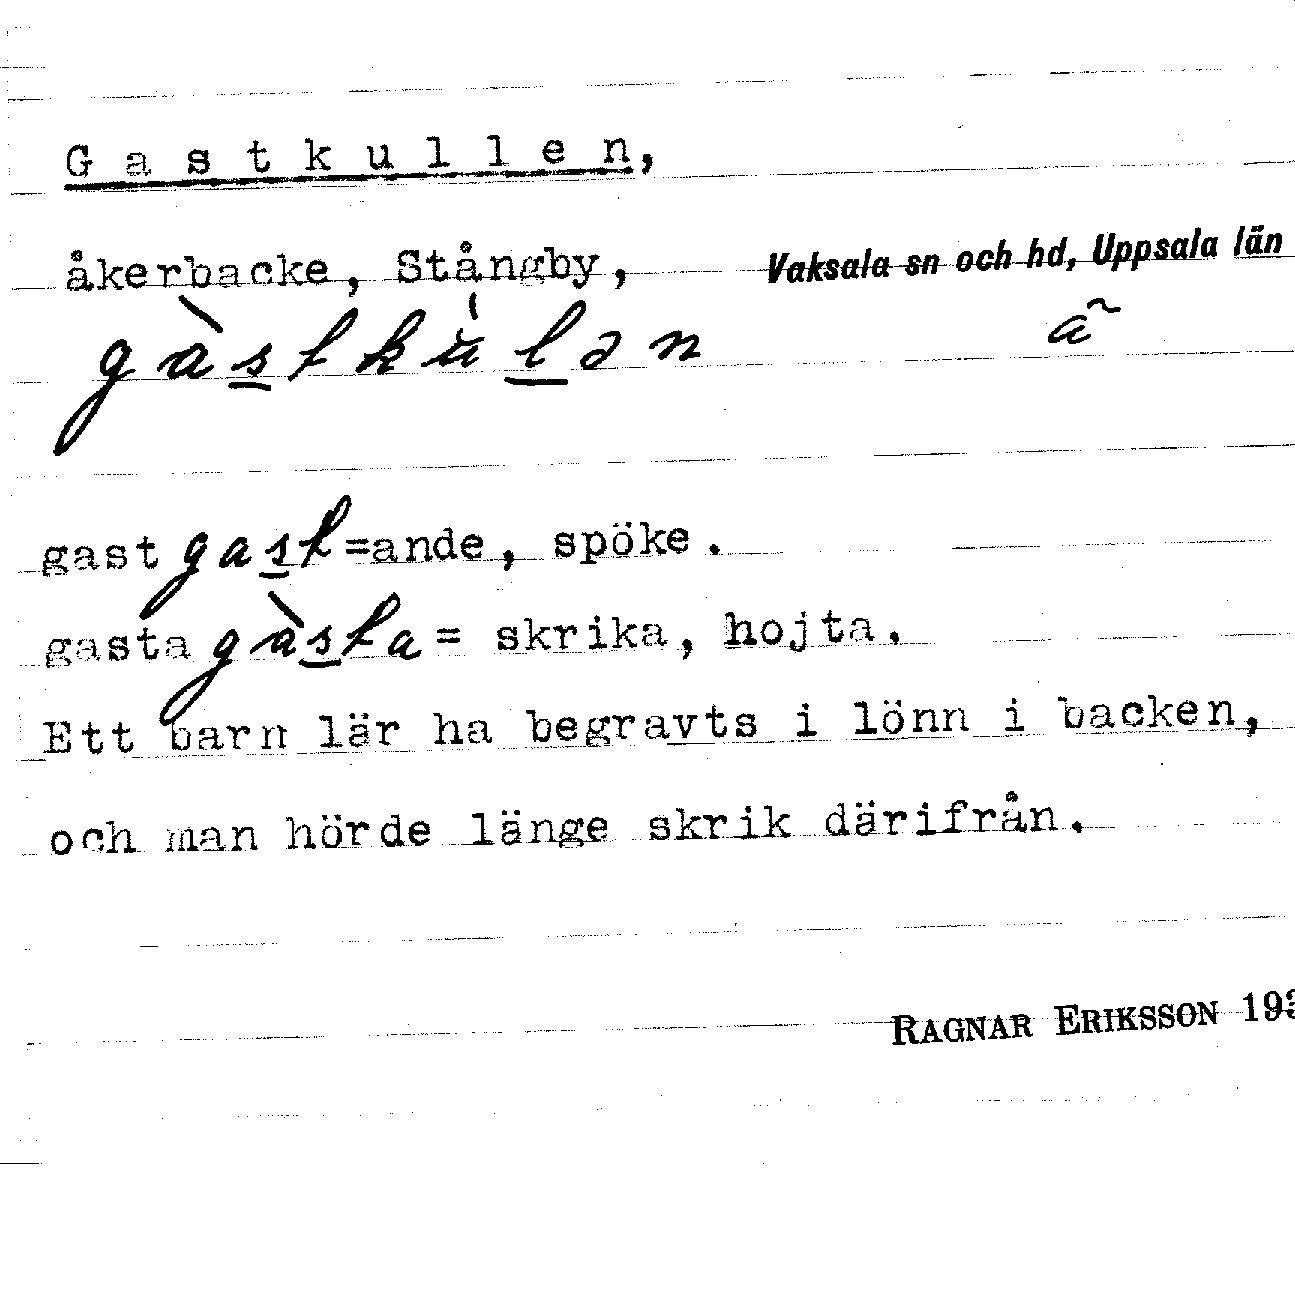 Gastkullen,
åkerbacke, Stångby, Vaksala sn och hd, Uppsala län
gàstkùlən ã
gast gast =ande, spöke.
gasta gàsta = skrika, hojta.
Ett barn lär ha begravts i lönn i backen,
och man hörde länge skrik därifrån.
RAGNAR ERIKSSON